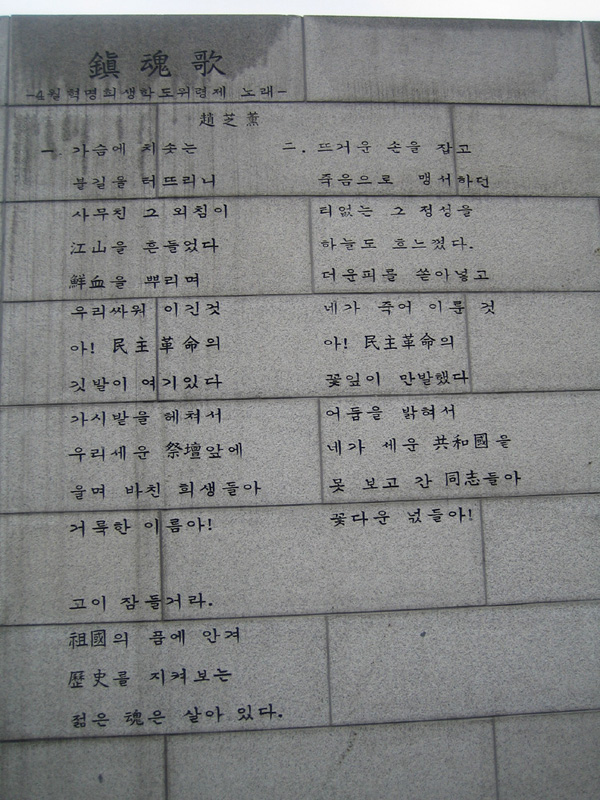 鎭魂歌
-4월혁명희생학도위령제 노래-
趙芝薰
一. 가슴에 치솟는
불길을 터뜨리니
사무친 그 외침이
江山을 흔들었다
鮮血을 뿌리며
우리싸워 이긴것
아! 民主革命의
깃발이 여기있다
가시밭을 헤쳐서
우리세운 祭壇앞에
울며 바친 희생들아
거룩한 이름아!
고이 잠들거라.
祖國의 품에 안겨
歷史를 지켜보는
젊은 魂은 살아 있다.
二. 뜨거운 손을 잡고
죽음으로 맹서하던
티없는 그 정성을
하늘도 흐느꼈다.
더운피를 쏟아넣고
네가 죽어 이룬 것
아! 民主革命의
꽃잎이 만발했다
어둠을 밝혀서
네가 세운 共和國을
못 보고 간 同志들아
꽃다운 넋들아!